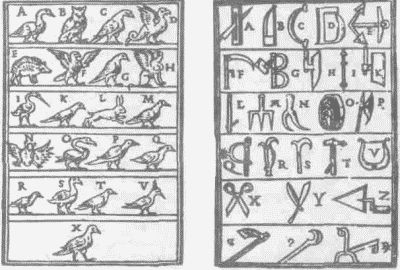 A B C D
E G H
I K L M
N O P Q
R S T V
X
A B C D E
F G H I K
L M N O P
Q R S T V
X Y Z
9 ?